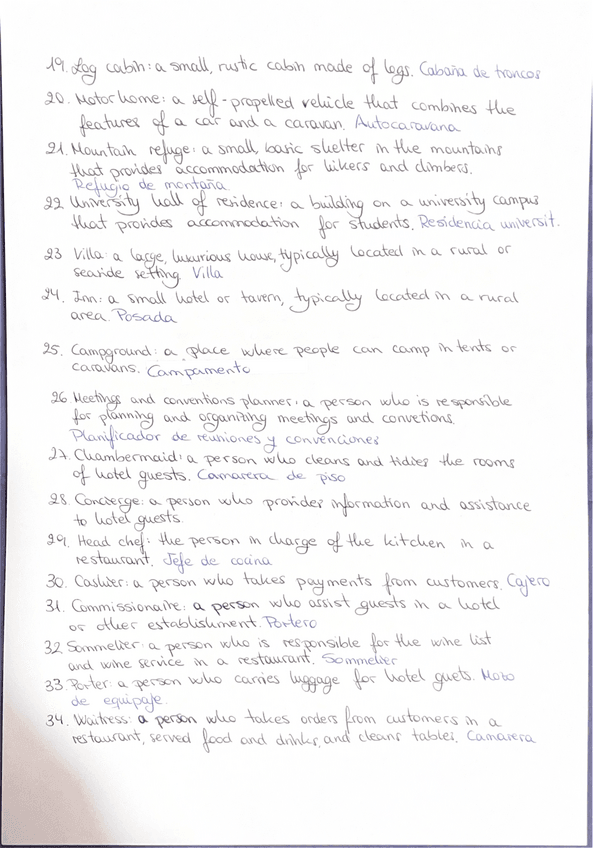 19. Log cabin: a small, rustic cabin made of logs. Cabaña de troncos
20. Motorhome: a self-propelled vehicle that combines the
features of a car and a caravan. Autocaravana
21. Mountain refuge: a small, basic shelter in the mountains
that provides accommodation for hikers and climbers.
Refugio de montaña.
22. University hall of residence: a building on a university campus
that provides accommodation for students. Residencia universit.
23 Villa: a large, luxurious house, typically located in a rural or
seaside setting Villa
24. Inn: a small hotel or tavern, typically located in a rural
area. Posada
25. Campground: a place where people can camp in tents or
caravans. Campamento
26 Meetings and conventions planner: a person who is responsible
for planning and organizing meetings and convetions.
Planificador de reuniones y convenciones
27. Chambermaid: a person who cleans and tidies the rooms
of hotel guests. Camarera de piso
28. Concierge: a person who provides information and assistance
to hotel guests.
29. Head chef: the person in charge of the kitchen in a
restaurant. Jefe de cocina
30. Cashier: a person who takes payments from customers. Cajero
31. Commissionaire: a person who assist guests in a hotel
or other establishment. Portero
32. Sommelier: a person who is responsible for the wine list
and wine service in a restaurant. Sommelier
33. Porter: a person who carries luggage for hotel guets. Mozo
de equipaje.
34. Waitress: a person who takes orders from customers in a
restaurant, served food and drinks, and cleans tables. Camarera